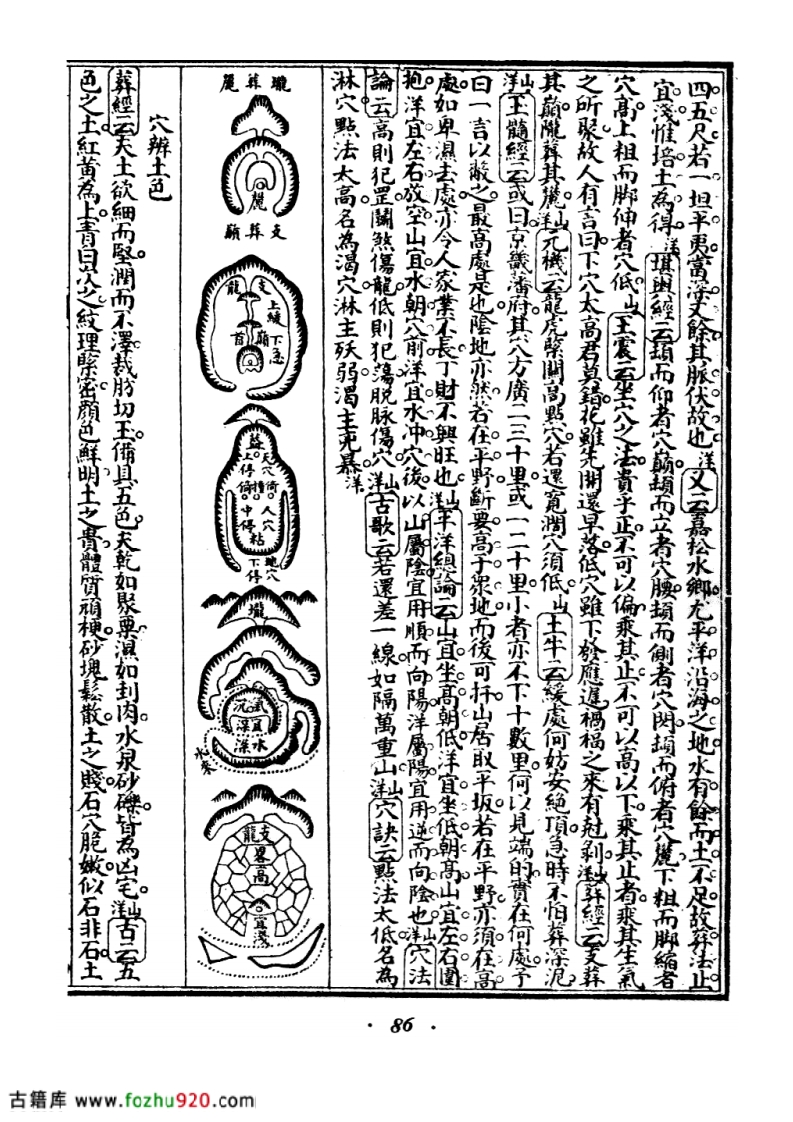 四五尺若一坦平更當深丈餘其脈伏故也洋又云嘉松水鄉尤平洋沿海之地水有餘而土不足故葬法止
宜淺惟培土為得洋堪輿經云頭而仰者穴巔頭而立者穴腰頭而側者穴閃頭而俯者穴麓下粗而脚縮者
穴高上粗而脚伸者穴低山王震云坐穴之法貴乎正不可以偏乘其止不可以高以下乘其止者乘其生氣
之所聚故人有言曰下穴太高君莫錯花雖先開還早落低穴雖下發應遲禍福之來有尅剝山洋葬經云支葬
其巔隴葬其麓山洋元機云龍虎緊關高點穴若還寬濶穴須低山土牛云緩處何妨安絕頂急時不怕葬深泥
山洋玉髓經云或曰京畿藩府其穴方廣二三十里或一二十里小者亦不下十數里何以見端的實在何處予
曰一言以蔽之最高處是也陰地亦然若在平野斷要高于衆地而後可扦山居取平坂若在平野亦須在高
處如卑濕去處亦令人家業不長丁財不興旺也山洋平洋總論云山宜坐高朝低洋宜坐低朝高山宜左右圍
抱洋宜左右放空山宜水朝穴前洋宜水冲穴後以山屬陰宜用順而向陽洋屬陽宜用逆而向陰也山洋穴法
論云高則犯罡鬭煞傷龍低則犯蕩脫脉傷穴山洋古歌云若還差一線如隔萬重山山洋穴訣云點法太低名為
淋穴點法太高名為渴穴淋主殀弱渴主兇暴洋
壠葬麓
麓
支葬巔
支龍
上緩下急
巔首
益
天穴上停
倚撞倚
人穴中停
粘
地穴下停
壠
氣沉宜深
水深
水來
支龍
畧高
宜淺
穴辨土色
葬經云夫土欲細而堅潤而不澤裁肪切玉備具五色夫乾如聚粟濕如刲肉水泉砂礫皆為凶宅山洋古云五
色之土紅黃為上青白次之紋理緊密顏色鮮明土之貴體質頑梗砂塊鬆散土之賤石穴脆嫩似石非石土
86
古籍库 www.fozhu920.com